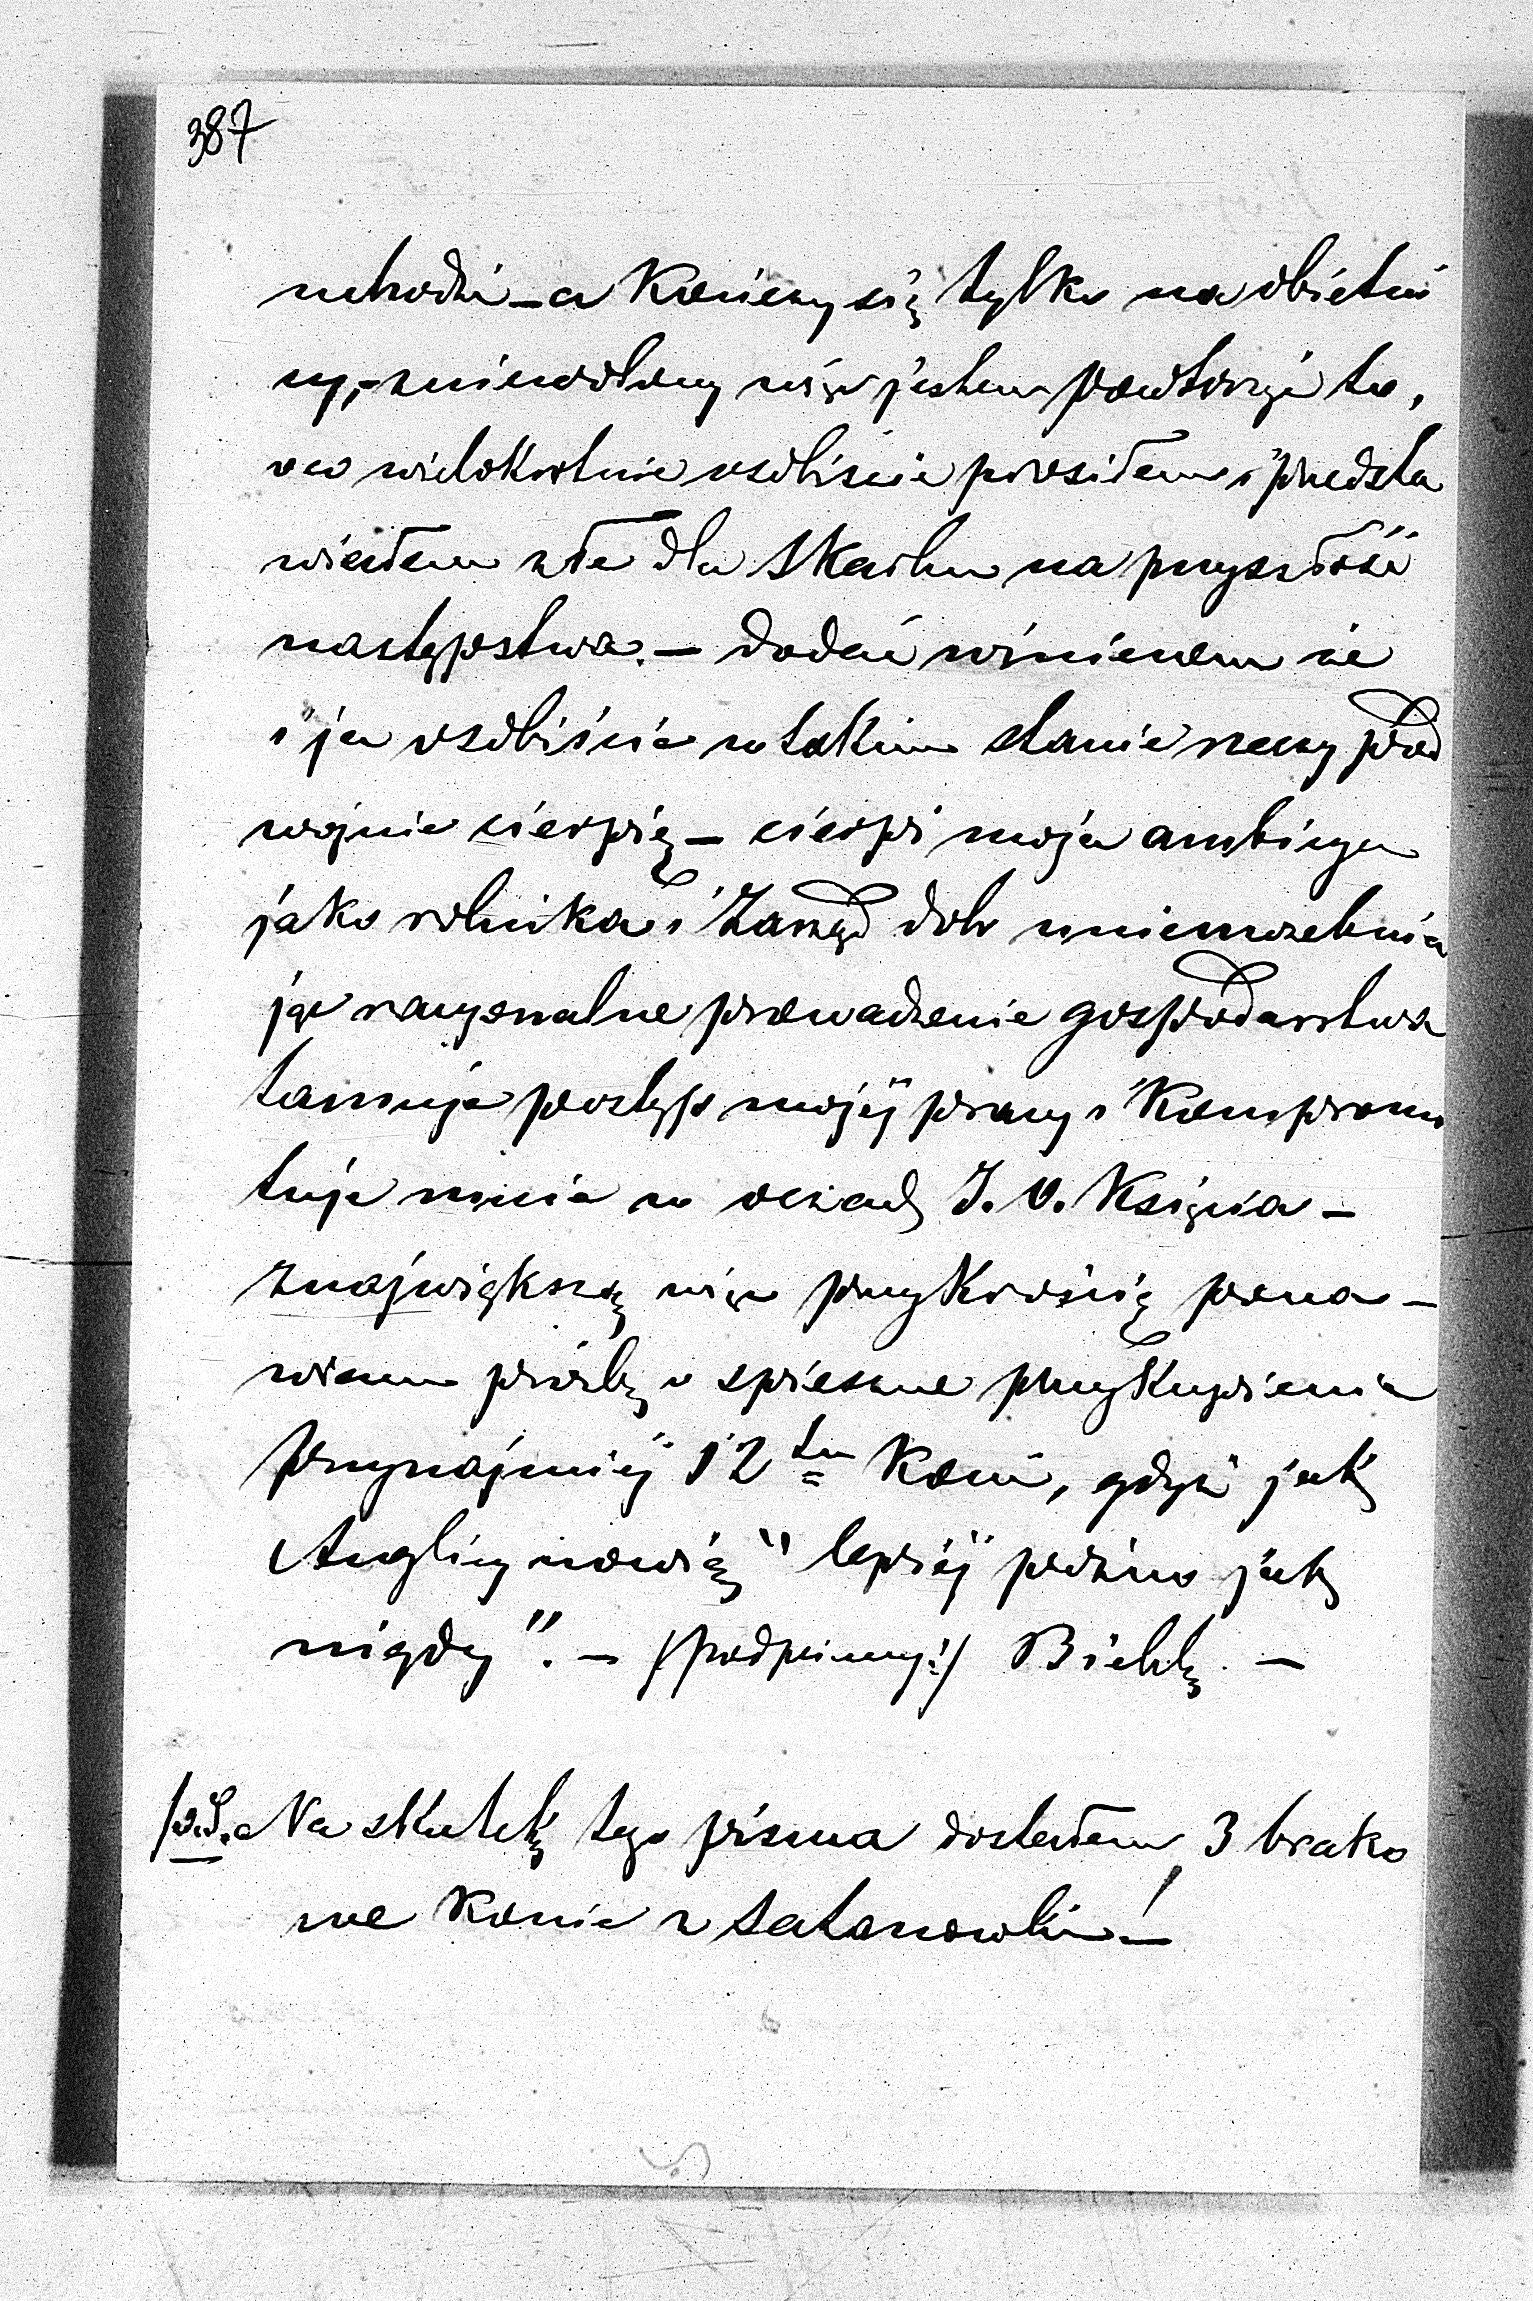 387
nchodzi – a kończy się tylko na obietni
cy, – zniewolony więc jestem powtórzyć to,
o co wielokrotnie osobiście prosiłem i przedsta
wiałem złe dla Skarbu na przyszłość
następstwa. – Dodać winienem że
i ja osobiście w takim stanie rzeczy pod
wójnie cierpię – cierpi moja ambicya
jako rolnika i Zarząd dób uniemożebnia
jąc racyonalne prowadzenie gospodarstwa
tamuje postęp mojéj pracy i kompromi
tuje mnie w oczach J. O. Księcia –
Z największą więc przykrością pona –
wiam prośbę o spieszne przykupienie
przynajmniéj 12tu koni, gdyż jak
Anglicy mówią "lepiéj późno jak
nigdy". – /podpisany:/ –
Na skutek tego pisma dostałem 3 brako
we konie z Satanowki! –